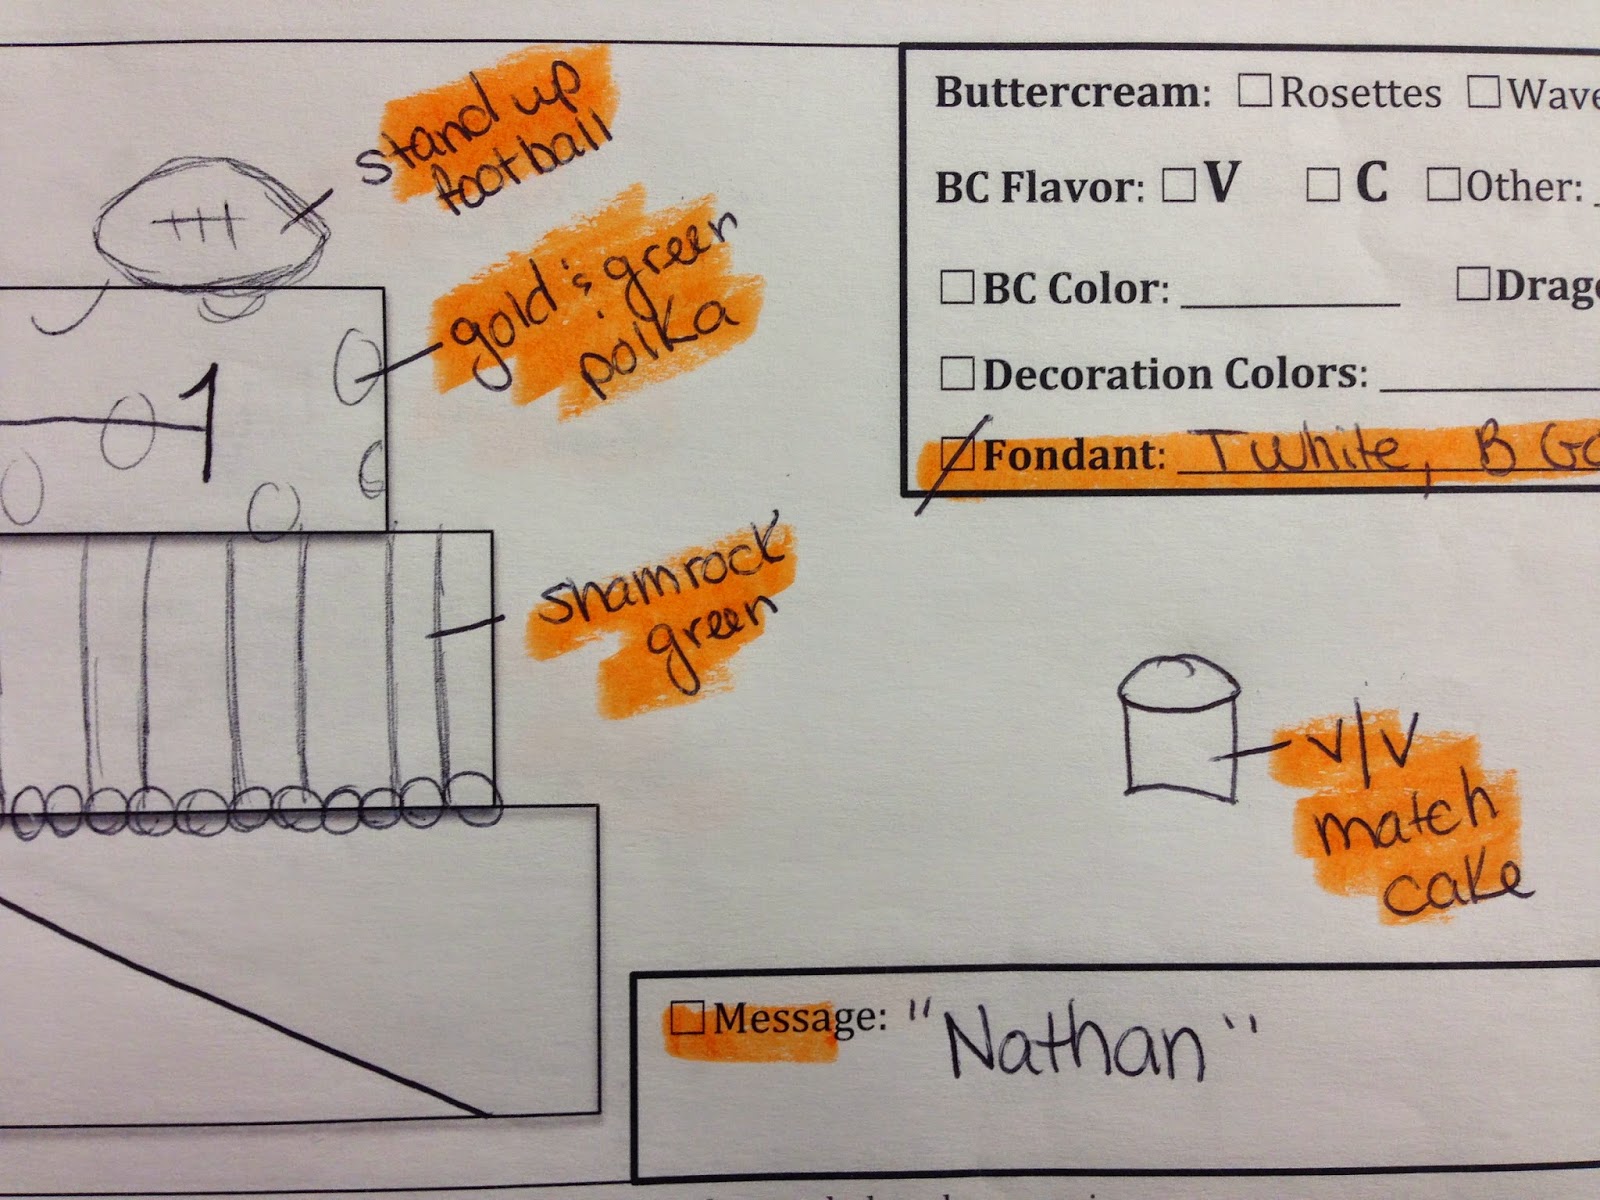 stand up
football
gold & green
polka
1
shamrock
green
Buttercream: ☐ Rosettes ☐ Wave
BC Flavor: ☐ V ☐ C ☐ Other:
☐ BC Color: ________
☐ Decoration Colors: ________
☐ Fondant: T White, B Go
V/V
match
cake
☐ Message: "Nathan"